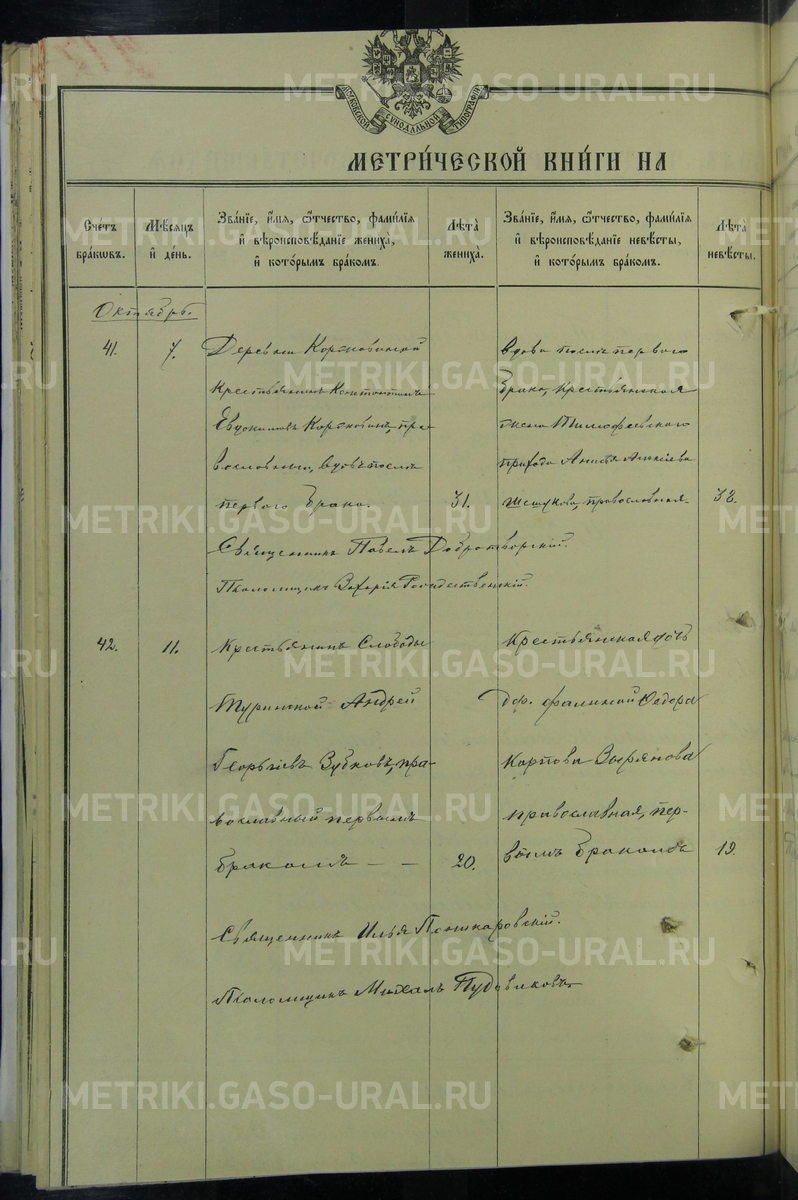 МОСКОВСКОЙ СѴНОДАЛЬНОЙ ТИПОГРАФІИ
МЕТРИ́ЧЕСКОЙ КНИ́ГИ НА
Сче́тъ бра́ковъ.
Мѣ́сяцъ и҆ де́нь.
Зва́нїе, и҆́мя, ѻ҆́тчество, фами́лїя
и҆ вѣроисповѣ́данїе жениха̀,
и҆ кото́рымъ бра́комъ.
Лѣта̀ жениха̀.
Зва́нїе, и҆́мя, ѻ҆́тчество, фами́лїя
и҆ вѣроисповѣ́данїе невѣ́сты,
и҆ кото́рымъ бра́комъ.
Лѣта̀ невѣ́сты.
Октябрь.
41.
7.
Деревни
Крестьянинъ Константинъ
Евдокимовъ пра-
вославный, вдовъ послѣ
перваго брака.
31.
Вдова послѣ перваго
брака, крестьянская
жена Тимофеевскаго
прихода
православная.
38.
Священникъ Павелъ Добротворскій.
Псаломщикъ Захарія Рождественскій.
42.
11.
Крестьянинъ Слободы
Туринской Андрей
Георгіевъ Зубковъ, пра-
вославный первымъ
бракомъ — —
20.
Крестьянская дочь
дер. Ѳедора
Карпова Зырянова
православная, пер-
вымъ бракомъ
19.
Священникъ Илья
Псаломщикъ Михаилъ Пудовиковъ.
METRIKI.GASO-URAL.RU